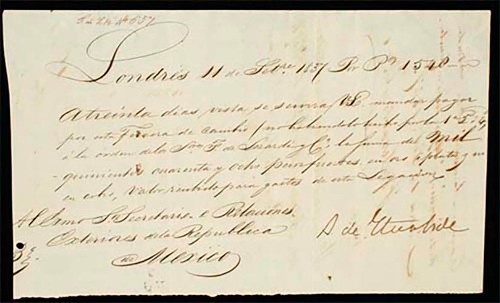 Londres 11 de Febre. 1837 Por Ps. 1548
A treinta dias vista se servira V.E. mandar pagar
por esta Tercera de cambio (no habiendolo hecho por la 1a. ó
á la orden de la Sres. F. de Lizardi y Ca. la suma de Mil
quinientos cuarenta y ocho pesos fuertes en oro ó plata y no
en cobre, valor recibido para gastos de esta Legacion
Al Exmo. Sr. Secretario de Relaciones
Exteriores de la Republica
de Mexico
A de Yturbide